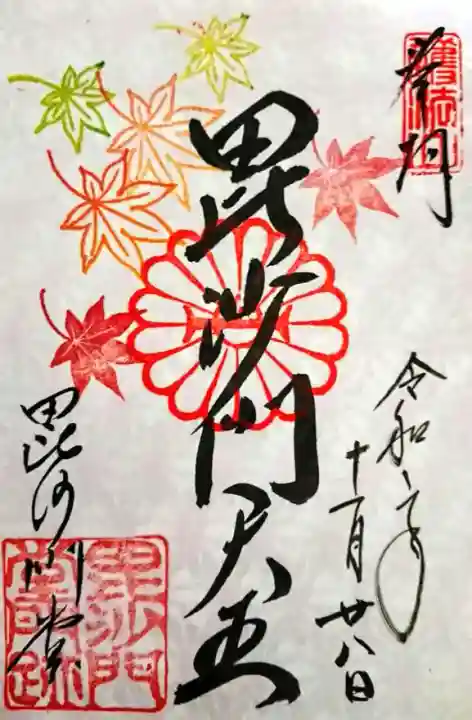 奉拝
護法山
令和二年
十一月廿八日
毘沙門天王
毘沙門堂
毘沙門
堂門跡